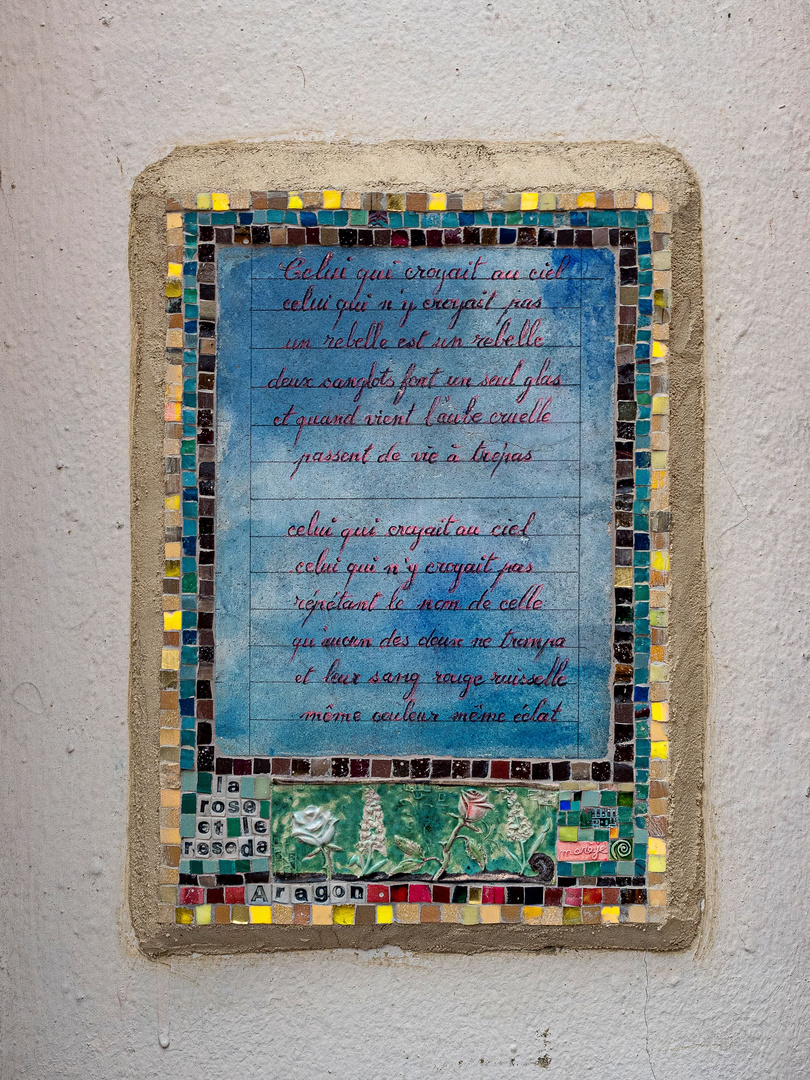 Celui qui croyait au ciel
celui qui n'y croyait pas
un rebelle est un rebelle
deux sanglots font un seul glas
et quand vient l'aube cruelle
passent de vie à trépas
celui qui croyait au ciel
celui qui n'y croyait pas
répétant le nom de celle
qu'aucun des deux ne trompa
et leur sang rouge ruisselle
même couleur même éclat
la
rose
et le
reseda
maroye
Aragon